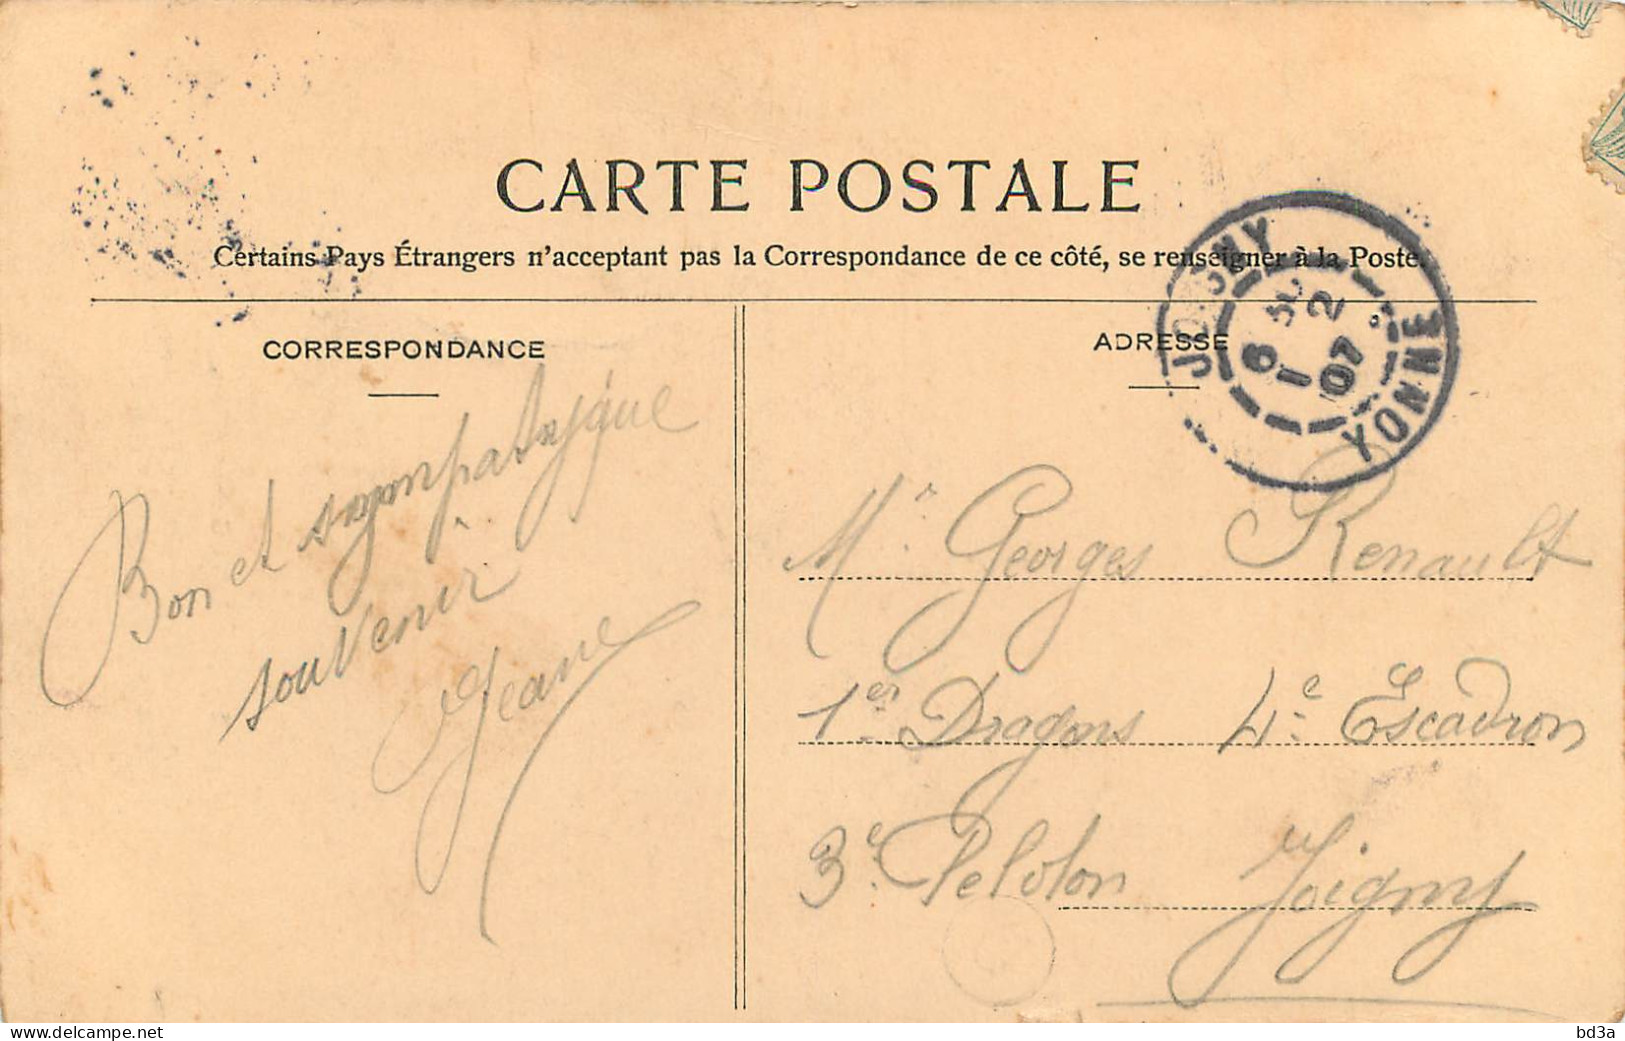 CARTE POSTALE
Certains Pays Étrangers n'acceptant pas la Correspondance de ce côté, se renseigner à la Poste.
CORRESPONDANCE
Bon et sympathique
souvenir
Jeane
ADRESSE
JOIGNY
6 1 07
YONNE
Mr. Georges Renault
1er Dragons 4e Escadron
3e Peloton Joigny
www.delcampe.net
bd3a